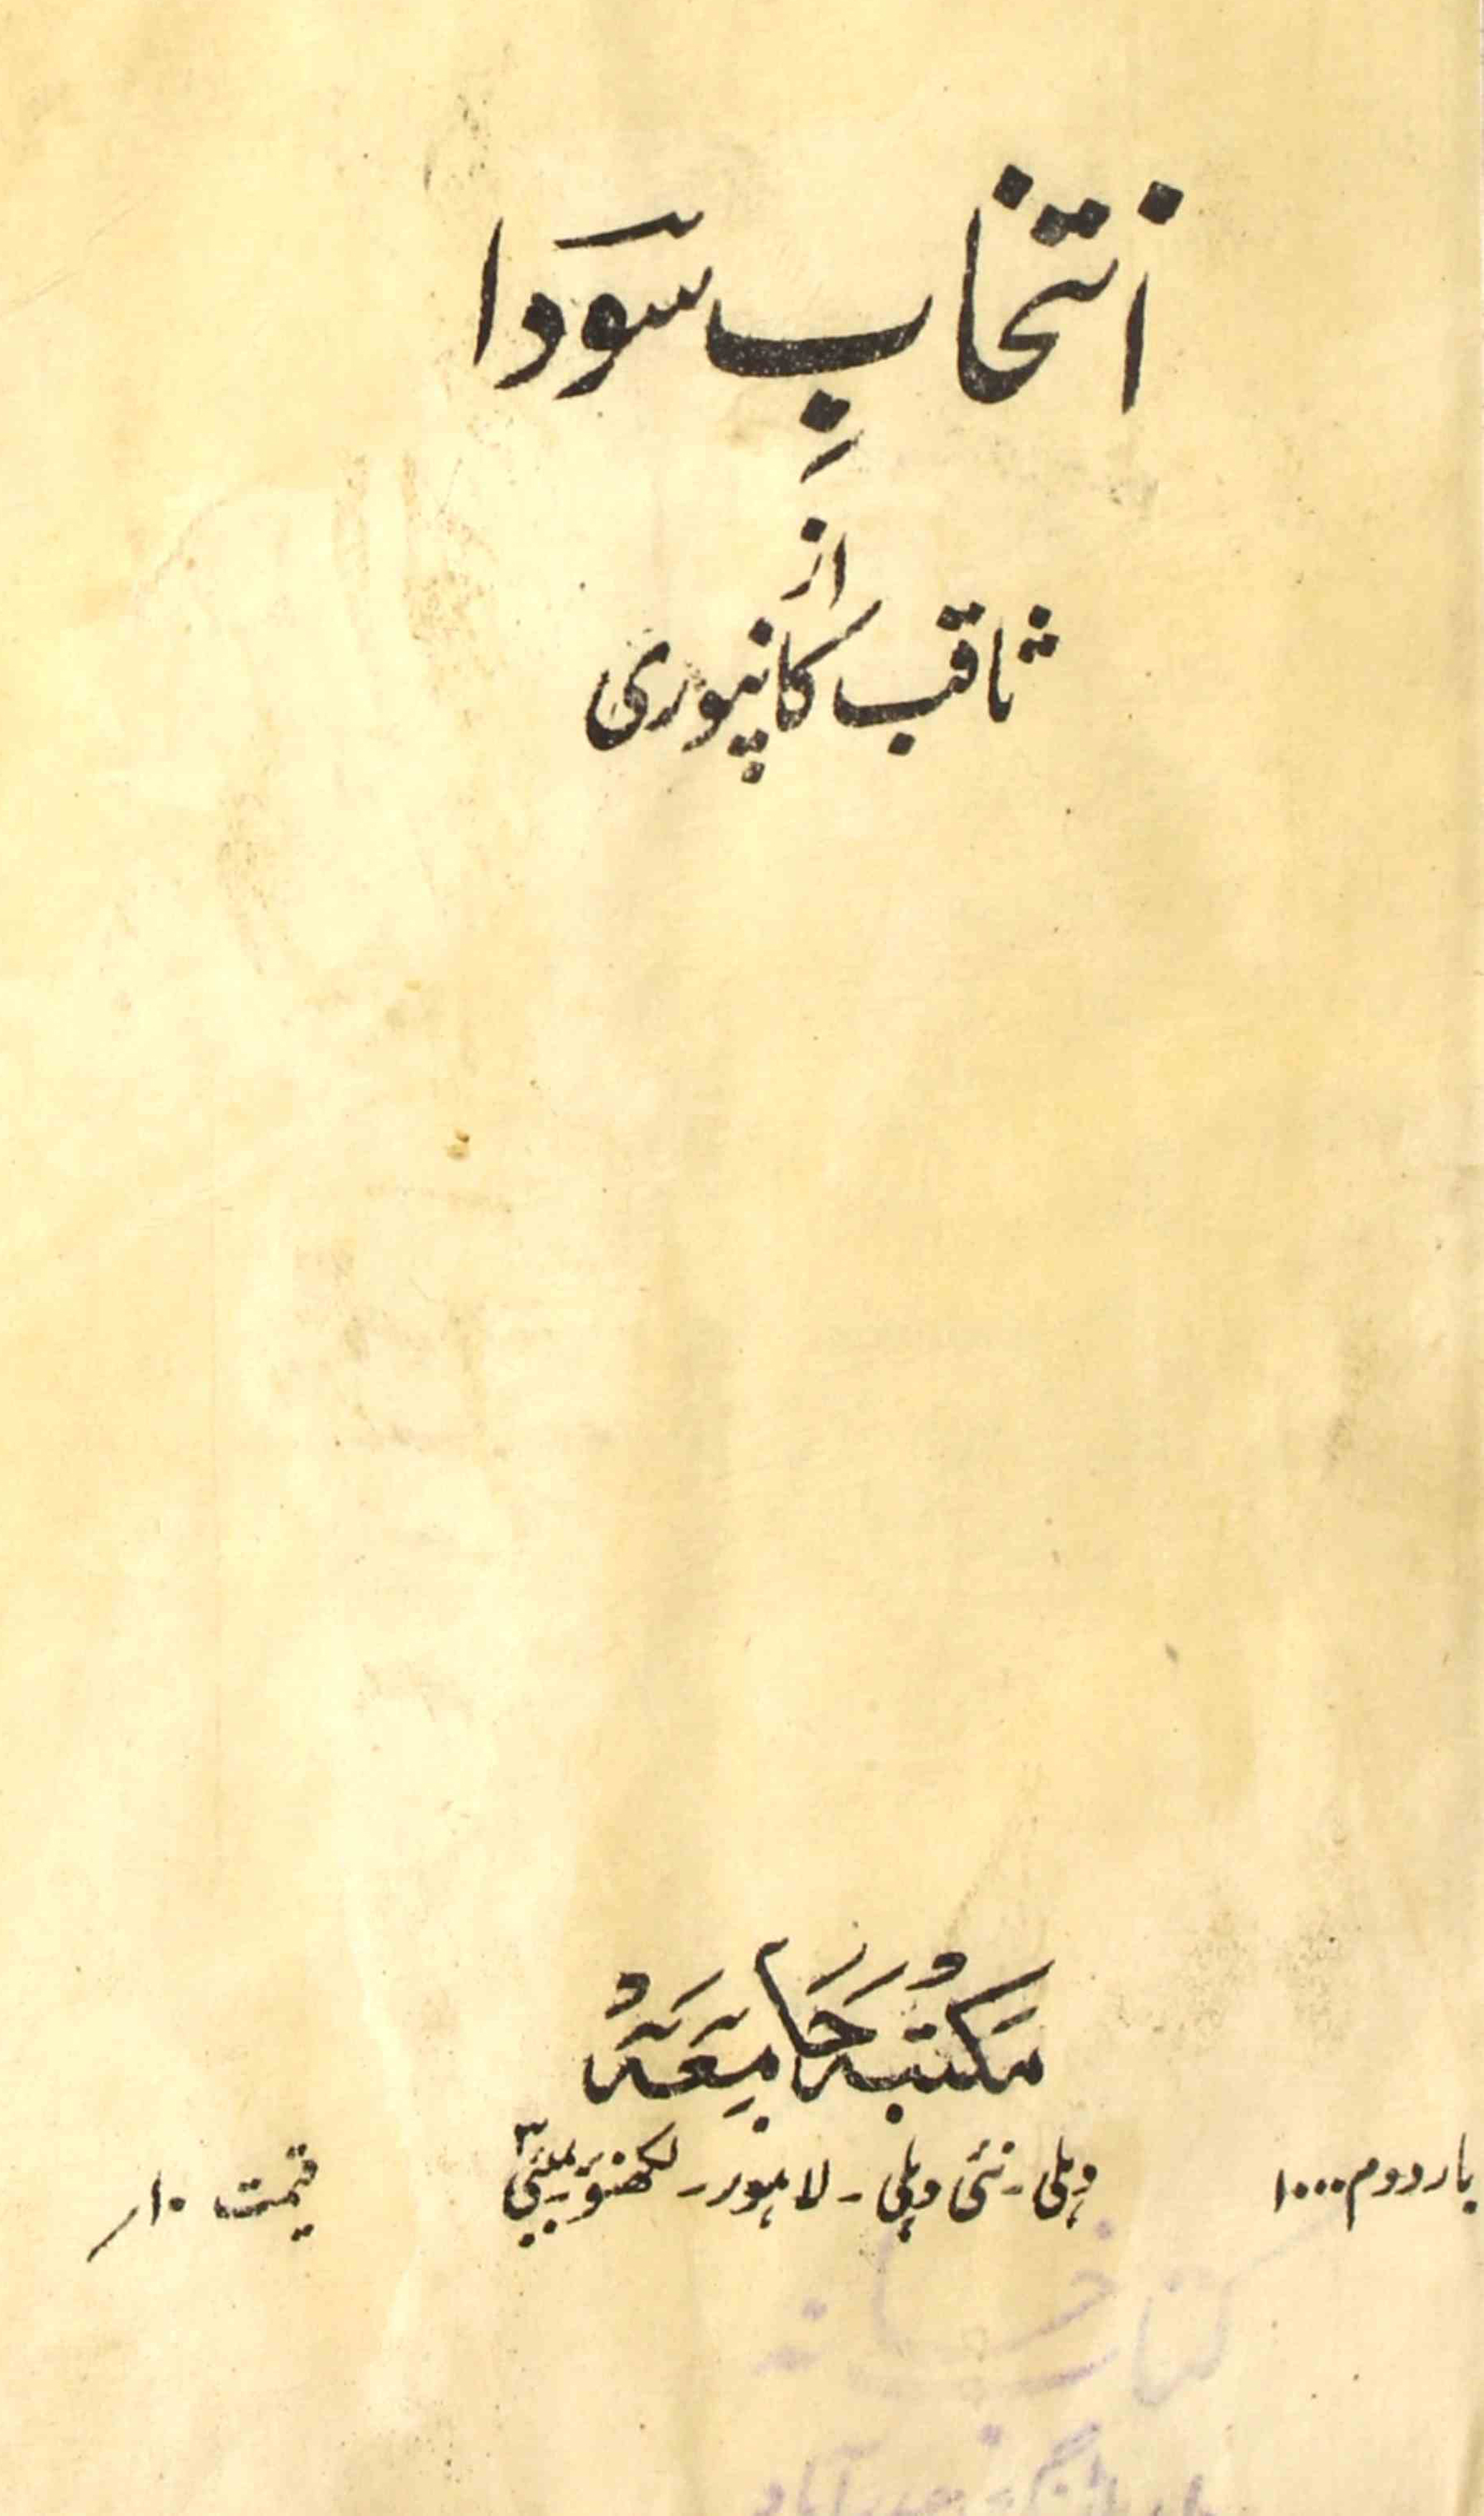 انتخابِ سودا
از
ثاقب کانپوری
مکتبہ جامعہ
دہلی۔ نئی دہلی۔ لاہور۔ لکھنؤ۔ بمبئی ۳
بار دوم ۱۰۰۰
قیمت ۱۰؍
کتاب خانہ